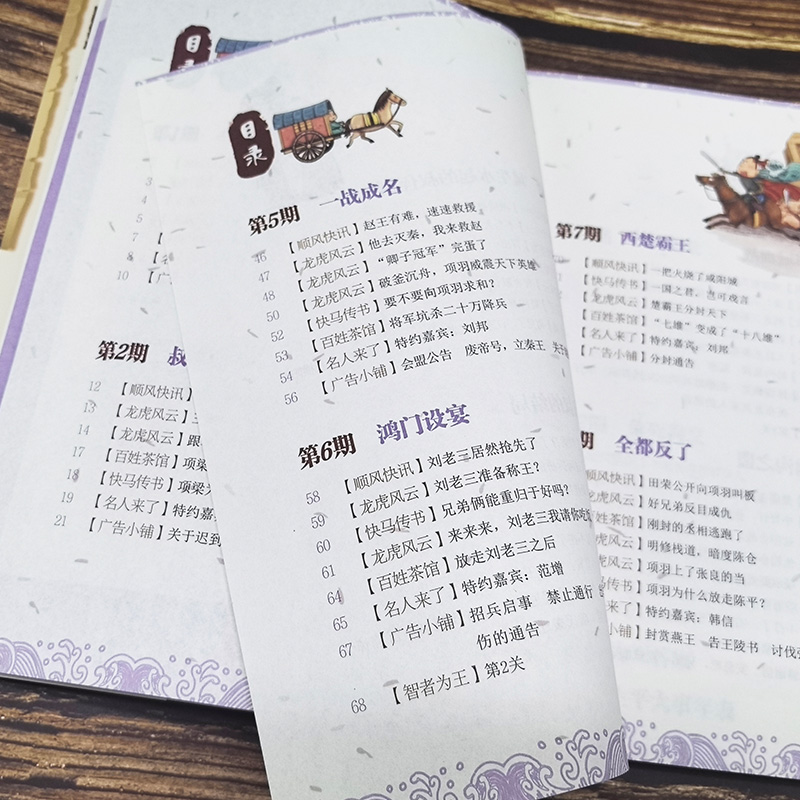 目录
3
4
5
7
8
10
第2期
12 【顺风快讯】
13 【龙虎风云】
14 【龙虎风云】跟
17 【百姓茶馆】项梁
18 【快马传书】项梁
19 【名人来了】特约嘉
21 【广告小铺】关于迟到
目录
第5期 一战成名
46 【顺风快讯】赵王有难，速速救援
47 【龙虎风云】他去灭秦，我来救赵
48 【龙虎风云】“卿子冠军”完蛋了
50 【龙虎风云】破釜沉舟，项羽威震天下英雄
52 【快马传书】要不要向项羽求和？
53 【百姓茶馆】将军坑杀二十万降兵
54 【名人来了】特约嘉宾：刘邦
56 【广告小铺】会盟公告 废帝号，立秦王
第6期 鸿门设宴
58 【顺风快讯】刘老三居然抢先了
59 【龙虎风云】刘老三准备称王？
60 【快马传书】兄弟俩能重归于好吗？
61 【龙虎风云】来来来，刘老三我请你吃
64 【百姓茶馆】放走刘老三之后
65 【名人来了】特约嘉宾：范增
67 【广告小铺】招兵启事 禁止通行
伤的通告
68 【智者为王】第2关
第7期 西楚霸王
【顺风快讯】一把火烧了咸阳城
【快马传书】一国之君，岂可戏言
【龙虎风云】楚霸王分封天下
【百姓茶馆】“七雄”变成了“十八雄”
【名人来了】特约嘉宾：刘邦
【广告小铺】分封通告
期 全都反了
顺风快讯】田荣公开向项羽叫板
龙虎风云】好兄弟反目成仇
百姓茶馆】刚封的丞相逃跑了
虎风云】明修栈道，暗度陈仓
虎风云】项羽上了张良的当
马传书】项羽为什么放走陈平？
人来了】特约嘉宾：韩信
小铺】封赏燕王 告王陵书 讨伐